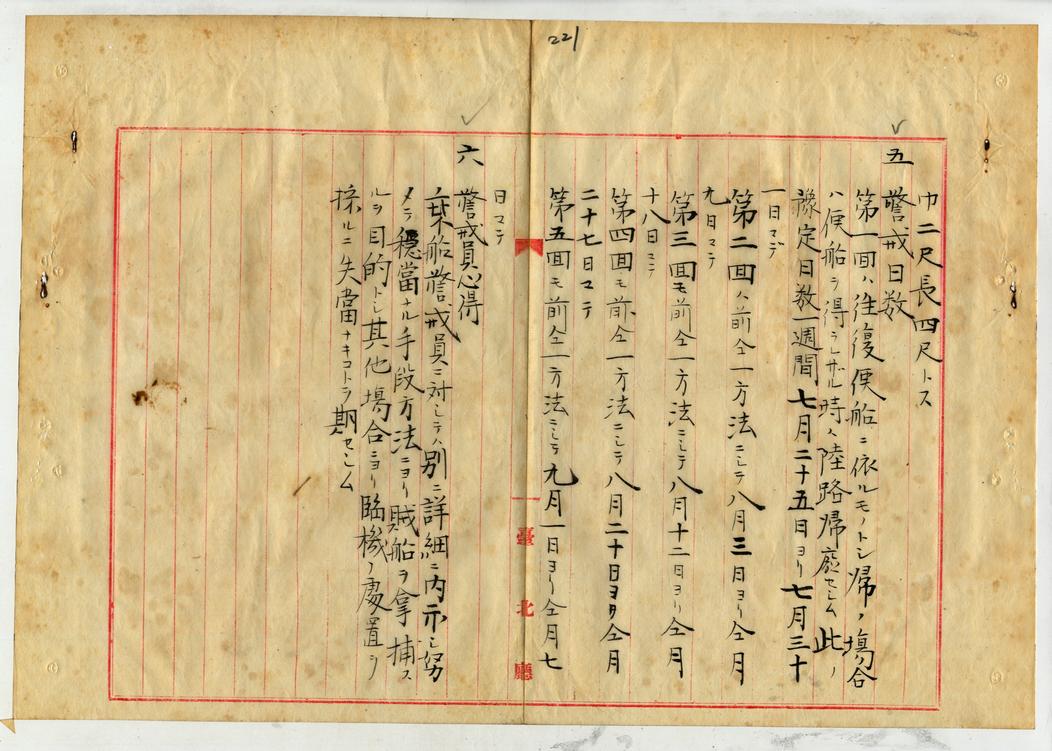 221
巾二尺長四尺トス
五 警戒日数
第一囬ハ往復便船ニ依ルモノトシ帰ノ塲合
ハ便船ヲ得ラレザル時ハ陸路帰廳セシム此ノ
豫定日数一週間七月二十五日ヨリ七月三十
一日マデ
第二囬ハ前仝一方法ニシテ八月三日ヨリ仝月
九日マテ
第三囬モ前仝一方法ニシテ八月十二日ヨリ仝月
十八日マテ
第四囬モ前仝一方法ニシテ八月二十日ヨリ仝月
二十七日マテ
第五囬モ前仝一方法ニシテ九月一日ヨリ仝月七
臺北廳
日マテ
六 警戒員心得
乗船警戒員ニ対シテハ別ニ詳細ニ内示シ努
メテ穏當ナル手段方法ニヨリ賊船ヲ拿捕ス
ルヲ目的トシ其他塲合ニヨリ臨機ノ處置ヲ
採ルニ失當ナキコトヲ期セシム